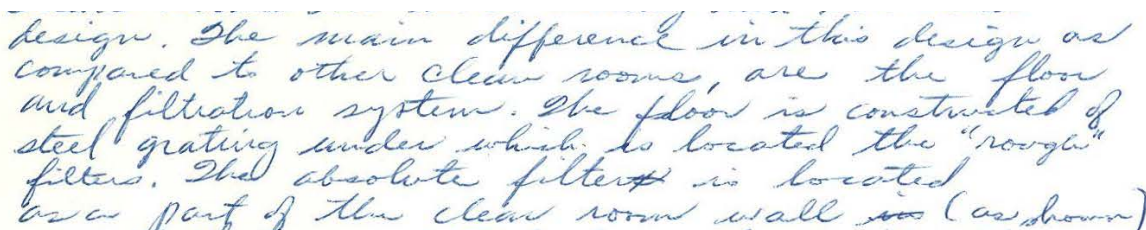 design. The main difference in this design as
compared to other clean rooms, are the floor
and filtration system. The floor is constructed of
steel grating under which is located the "rough"
filters. The absolute filter is located
as a part of the clean room wall (as shown)